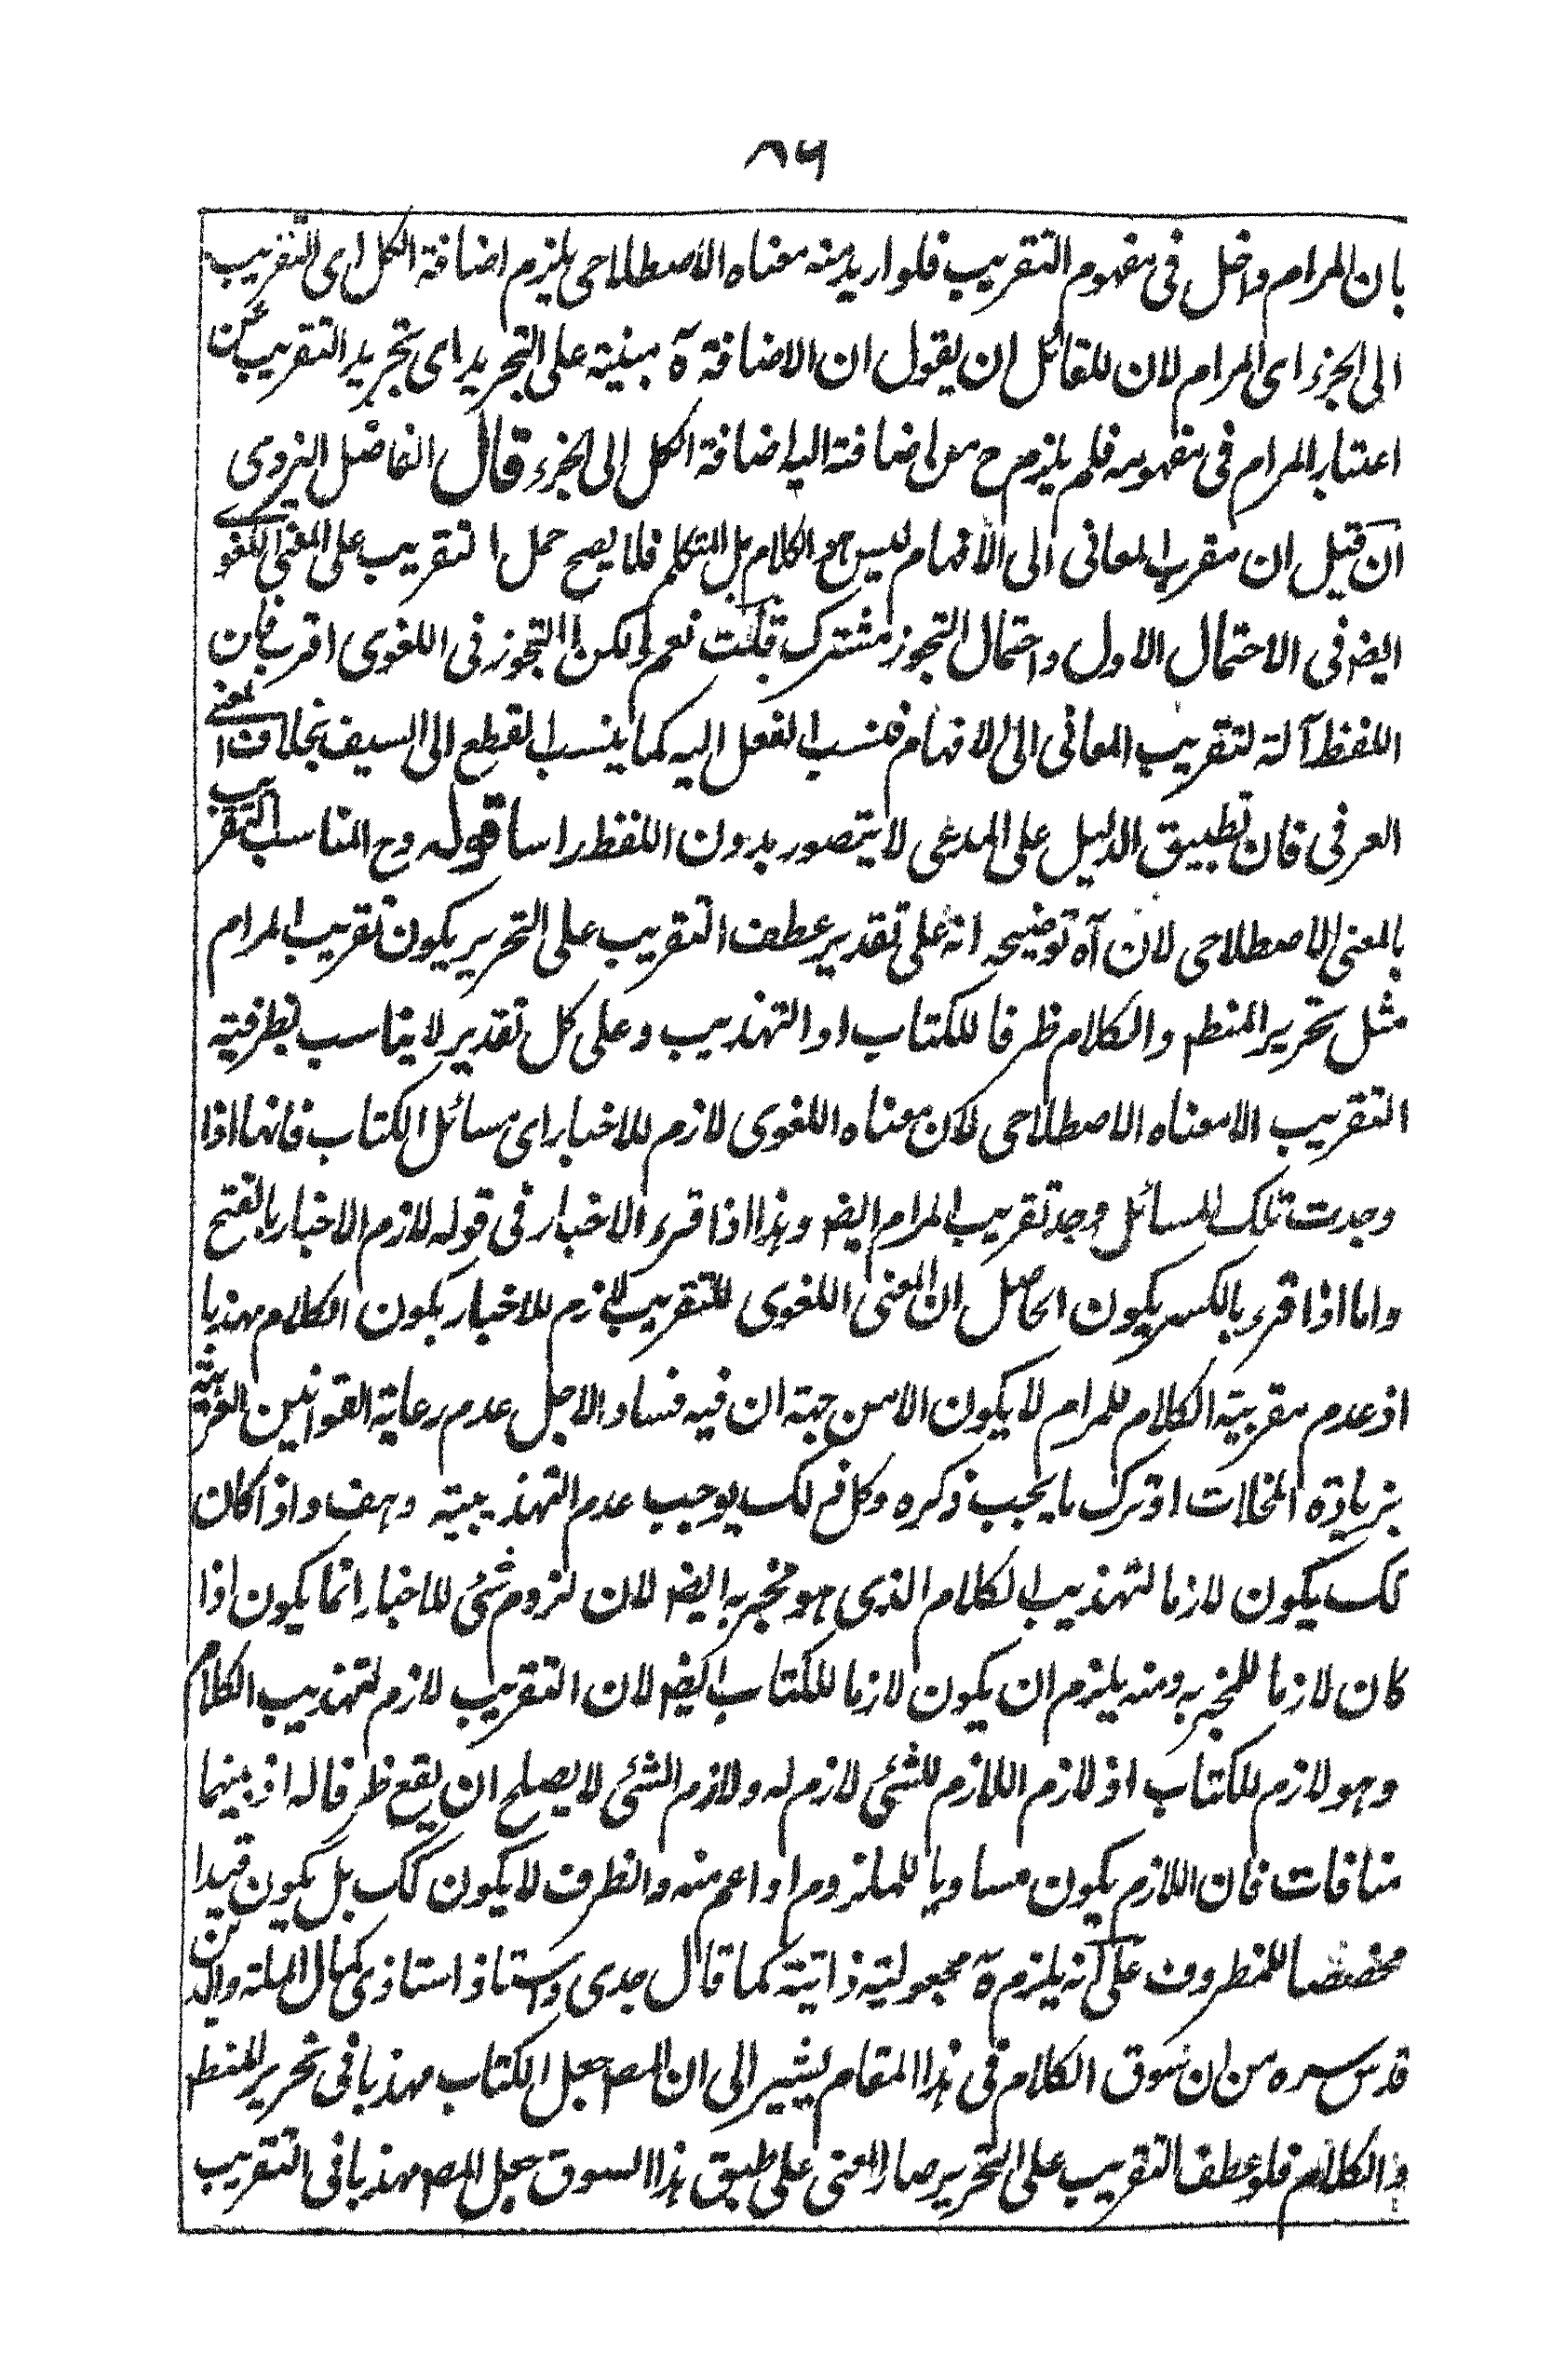 ٨٦
بان المرام داخل فى مفهوم التقريب فلو اريد منه معناه الاصطلاحى يلزم اضافة الكل اى التقريب
الى الجزء اى المرام لان للقائل ان يقول ان الاضافة ه مبنية على التجريد اى تجريد التقريب عن
اعتبار المرام فى مفهومه فلم يلزم ح من اضافته اليه اضافة الكل الى الجزء قال الفاضل اليزدى
ان قيل ان مقرب المعانى الى الافهام ليس هو الكلام بل المتكلم فلا يصح حمل التقريب على المعنى اللغوى
ايضا فى الاحتمال الاول واحتمال التجوز مشترك قلت نعم ولكن التجوز فى اللغوى اقرب فان
اللفظ آلة لتقريب المعانى الى الافهام فنسب الفعل اليه كما ينسب القطع الى السيف بخلاف المعنى
العرفى فان تطبيق الدليل على المدعى لا يتصور بدون اللفظ راسا قوله وح المناسب التقريب
بالمعنى الاصطلاحى لان آه توضيحه انه على تقدير عطف التقريب على التحرير يكون تقريب المرام
مثل تحرير المنطق والكلام ظرفا للكتاب او التهذيب وعلى كل تقدير لا يناسب بظرفيته
التقريب الا معناه الاصطلاحى لان معناه اللغوى لازم للاخبار اى مسائل الكتاب فانها اذا
وجدت تلك المسائل وجد تقريب المرام ايضا وهذا اذا قرء الاخبار فى قوله لازم الاخبار بالفتح
واما اذا قرء بالكسر يكون الحاصل ان المعنى اللغوى للتقريب لازم للاخبار بكون الكلام مهذبا
اذ عدم مقربية الكلام للمرام لا يكون الا من جهة ان فيه فساد الاجل عدم رعاية القوانين العربية
بزيادة المخلات او ترك ما يجب ذكره وكل ذلك يوجب عدم التهذيبية وهف واذا كان
كك يكون لازما لتهذيب الكلام الذى هو مخبر به ايضا لان لزوم شئ للاخبار انما يكون اذا
كان لازما للمخبر به ومنه يلزم ان يكون لازما للكتاب ايضا لان التقريب لازم لتهذيب الكلام
وهو لازم للكتاب اذ لازم اللازم للشئ لازم له ولازم الشئ لا يصلح ان يقع ظرفا له اذ بينهما
منافات فان اللازم يكون مساويا للملزوم او اعم منه والظرف لا يكون كك بل يكون قيدا
مخصصا للمظروف على انه يلزم ه مجعولية ذاتية كما قال جدى واستاذ استاذى كمال الملة والدين
قدس سره من ان سوق الكلام فى هذا المقام يشير الى ان المص جعل الكتاب مهذبا فى تحرير المنطق
والكلام فلو عطف التقريب على التحرير صار المعنى على طبق هذا السوق جعل المص مهذبا فى التقريب